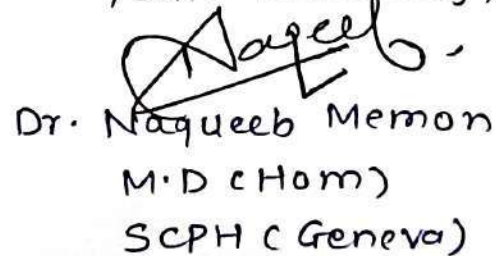 Naqeeb.
Dr. Naqueeb Memon
M.D (Hom)
SCPH (Geneva)